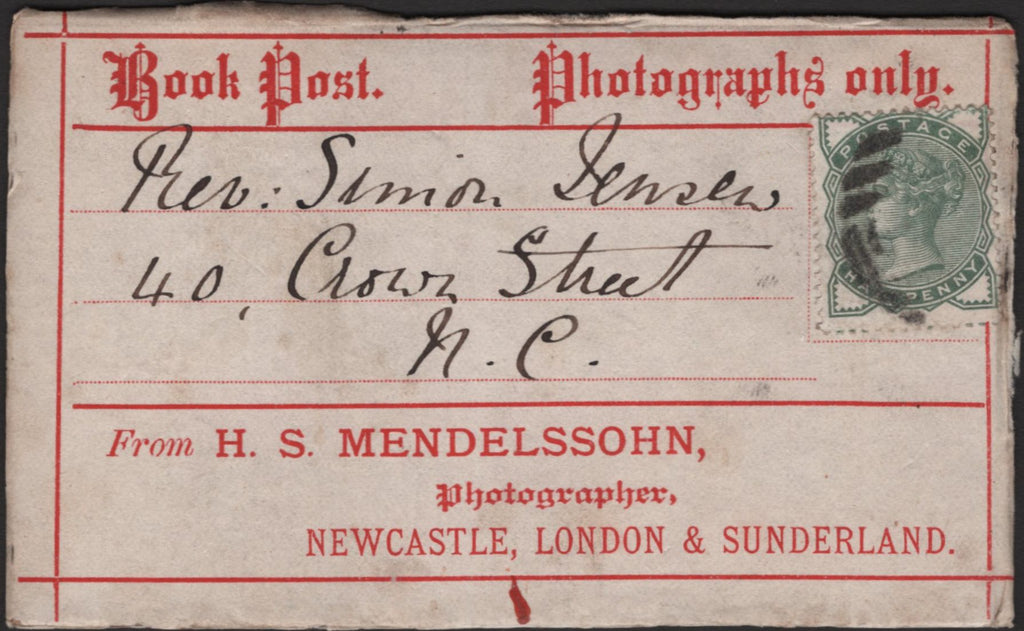 Book Post. Photographs only.
Rev: Simon Jensen
POSTAGE
HALFPENNY
40, Crown Street
N. C.
From H. S. MENDELSSOHN,
Photographer,
NEWCASTLE, LONDON & SUNDERLAND.